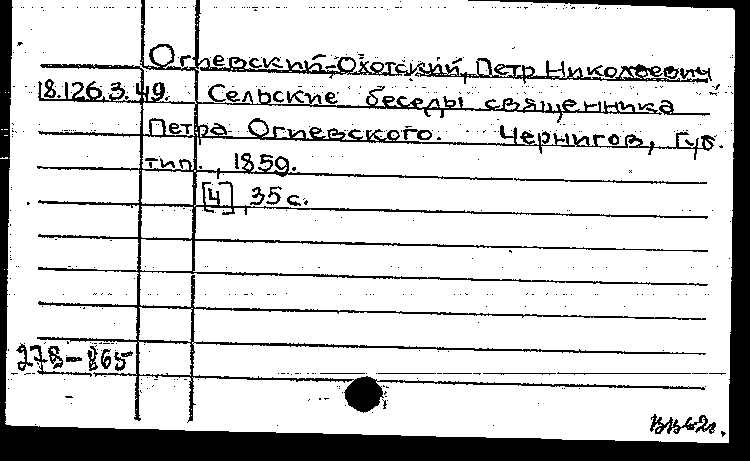 Огиевский-Охотский, Петр Николаевич,
18.126.3.49. Сельские беседы священника
Петра Огиевского. Чернигов, Губ.
тип., 1859.
[4], 35 с.
278-865